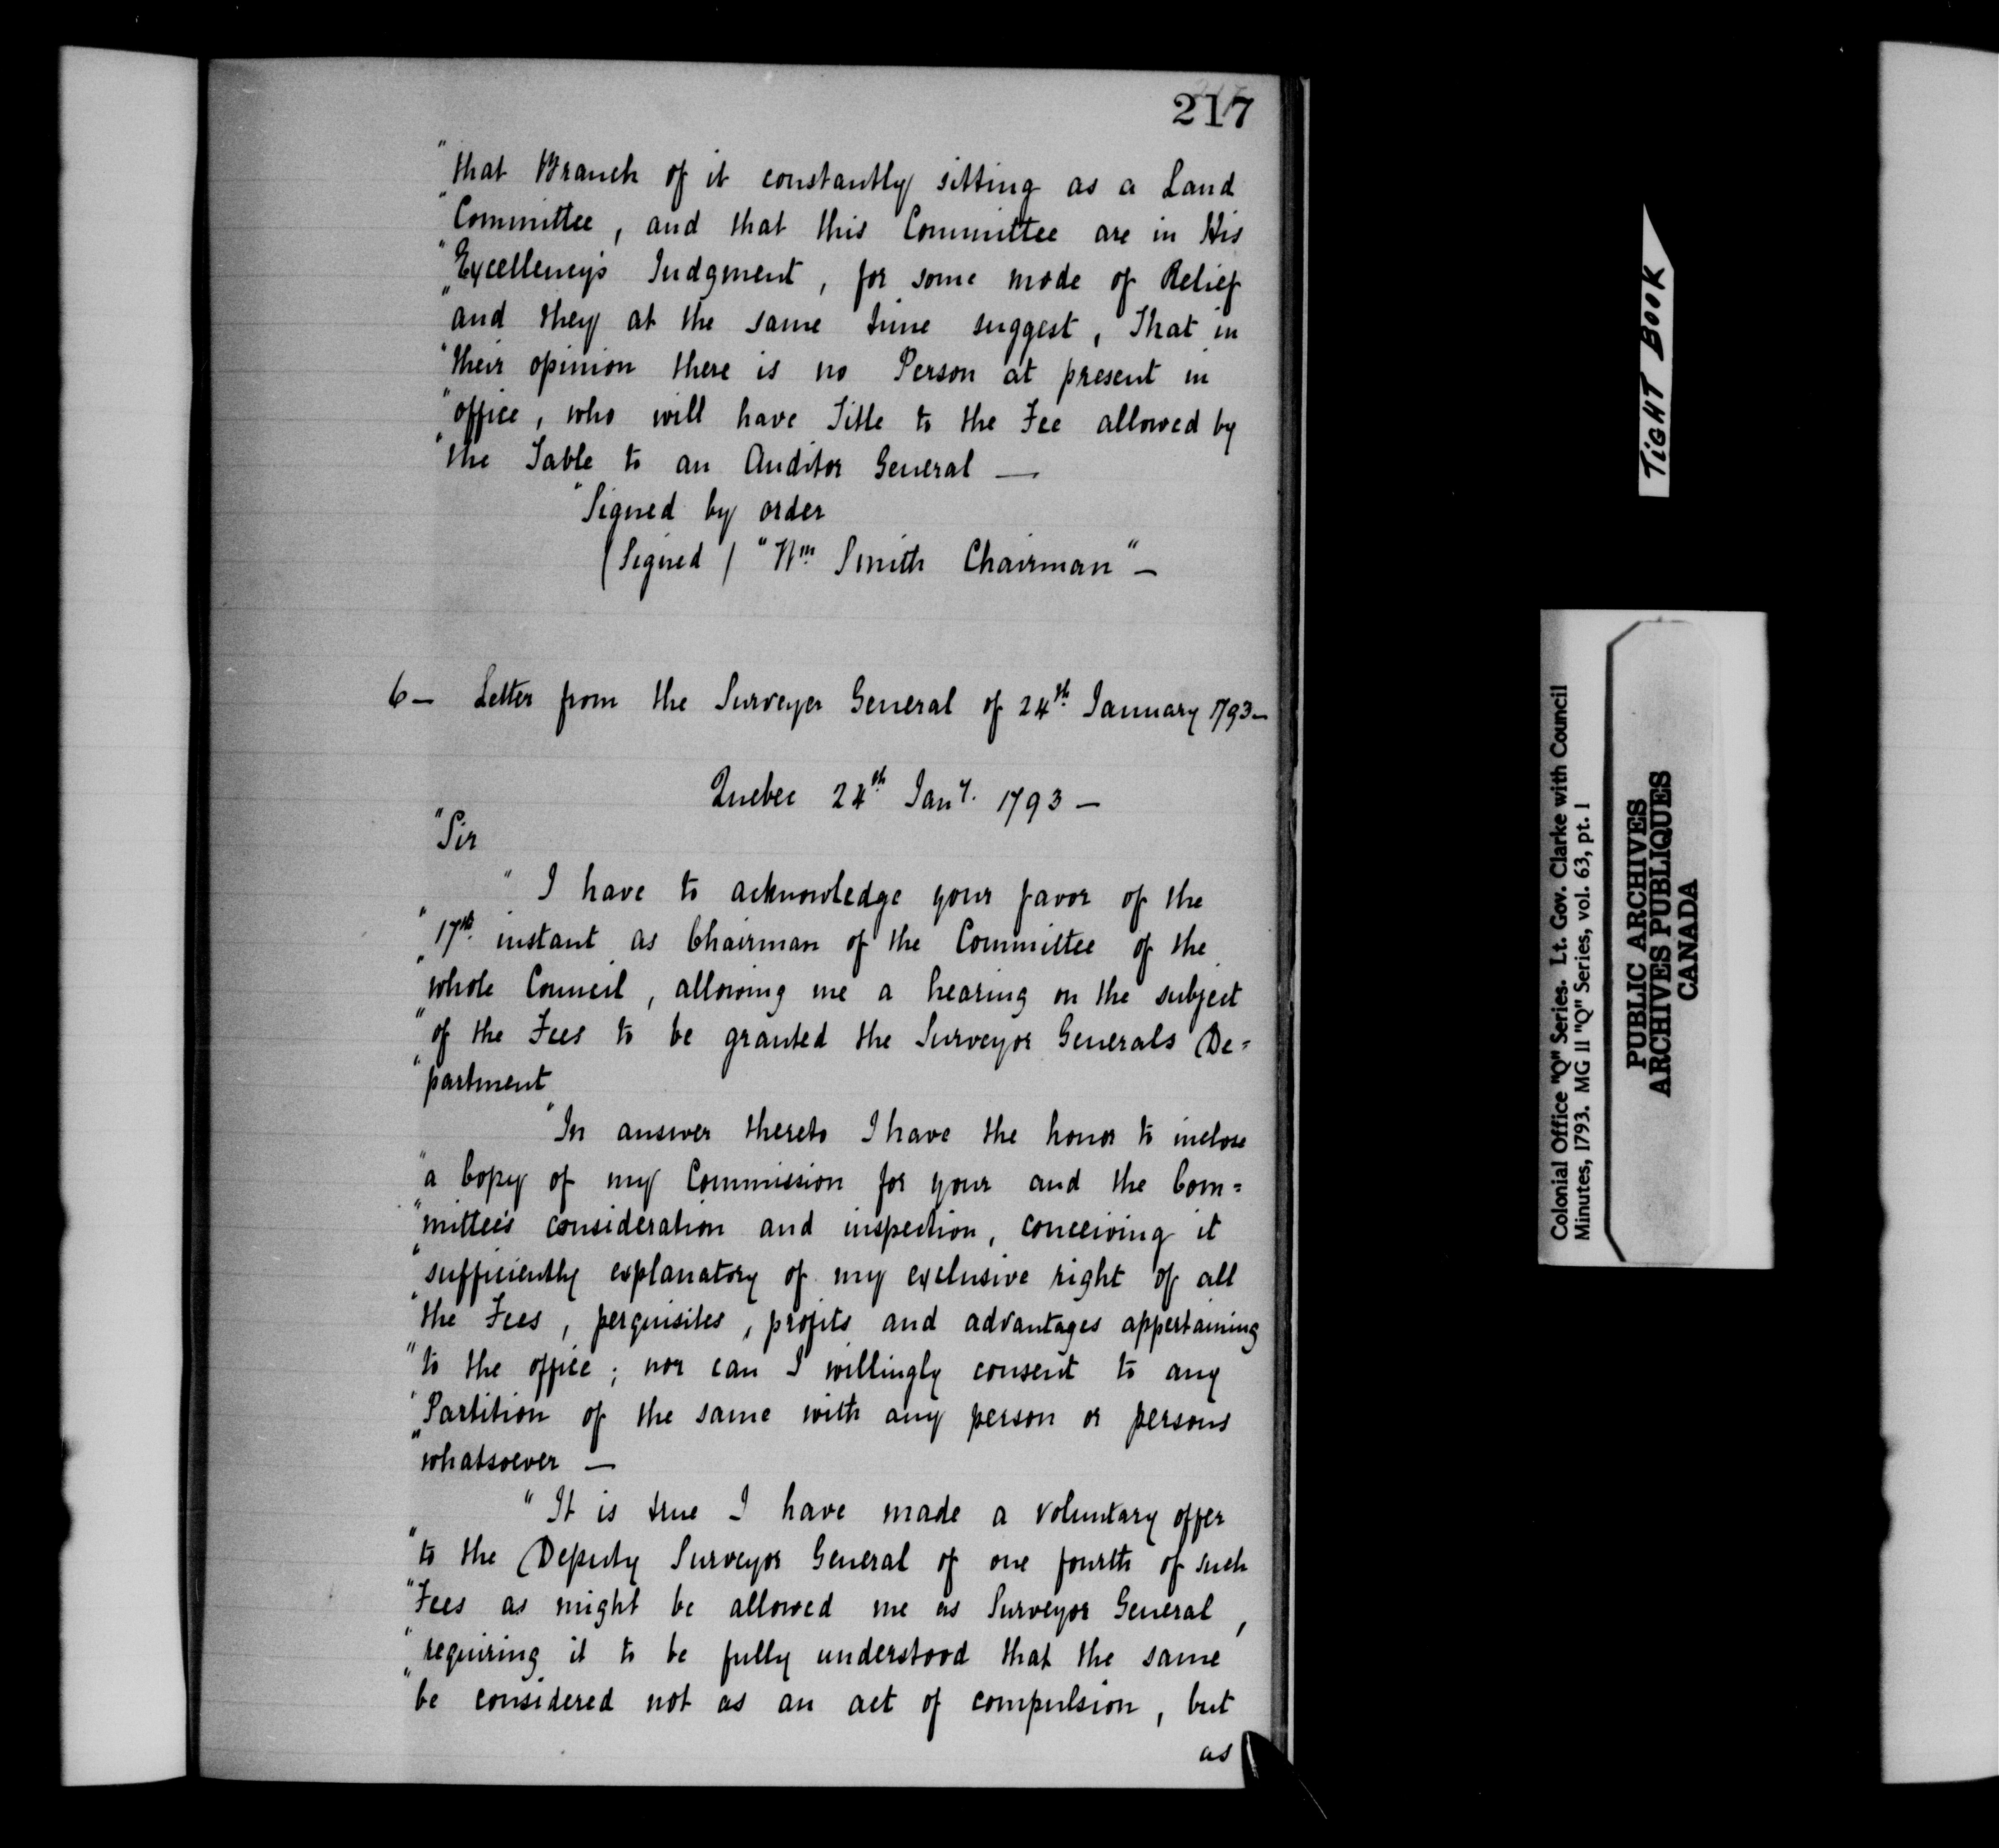 217
"that Branch of it constantly sitting as a Land
"Committee, and that this Committee are in His
"Excellency's Judgment, for some mode of Relief
"and they at the same time suggest, That in
"their opinion there is no Person at present in
"office, who will have Title to the Fee allowed by
"the Table to an Auditor General —
"Signed by order
(Signed) "Wm. Smith Chairman" —
6 — Letter from the Surveyer General of 24th. January 1793 —
Quebec 24th. Jany. 1793 —
"Sir
" I have to acknowledge your favor of the
"17th. instant as Chairman of the Committee of the
"whole Council, allowing me a hearing on the subject
"of the Fees to be granted the Surveyor Generals De=
"partment
"In answer thereto I have the honor to inclose
"a Copy of my Commission for your and the Com=
"mittee's consideration and inspection, conceiving it
"sufficiently explanatory of my exclusive right of all
"the Fees, perquisites, profits and advantages appertaining
"to the office; nor can I willingly consent to any
"Partition of the same with any person or persons
"whatsoever —
"It is true I have made a voluntary offer
"to the Deputy Surveyor General of one fourth of such
"Fees as might be allowed me as Surveyor General,
"requiring it to be fully understood that the same
"be considered not as an act of compulsion, but
as
TIGHT BOOK
Colonial Office "Q" Series. Lt. Gov. Clarke with Council
Minutes, 1793. MG 11 "Q" Series, vol. 63, pt. 1
PUBLIC ARCHIVES
ARCHIVES PUBLIQUES
CANADA